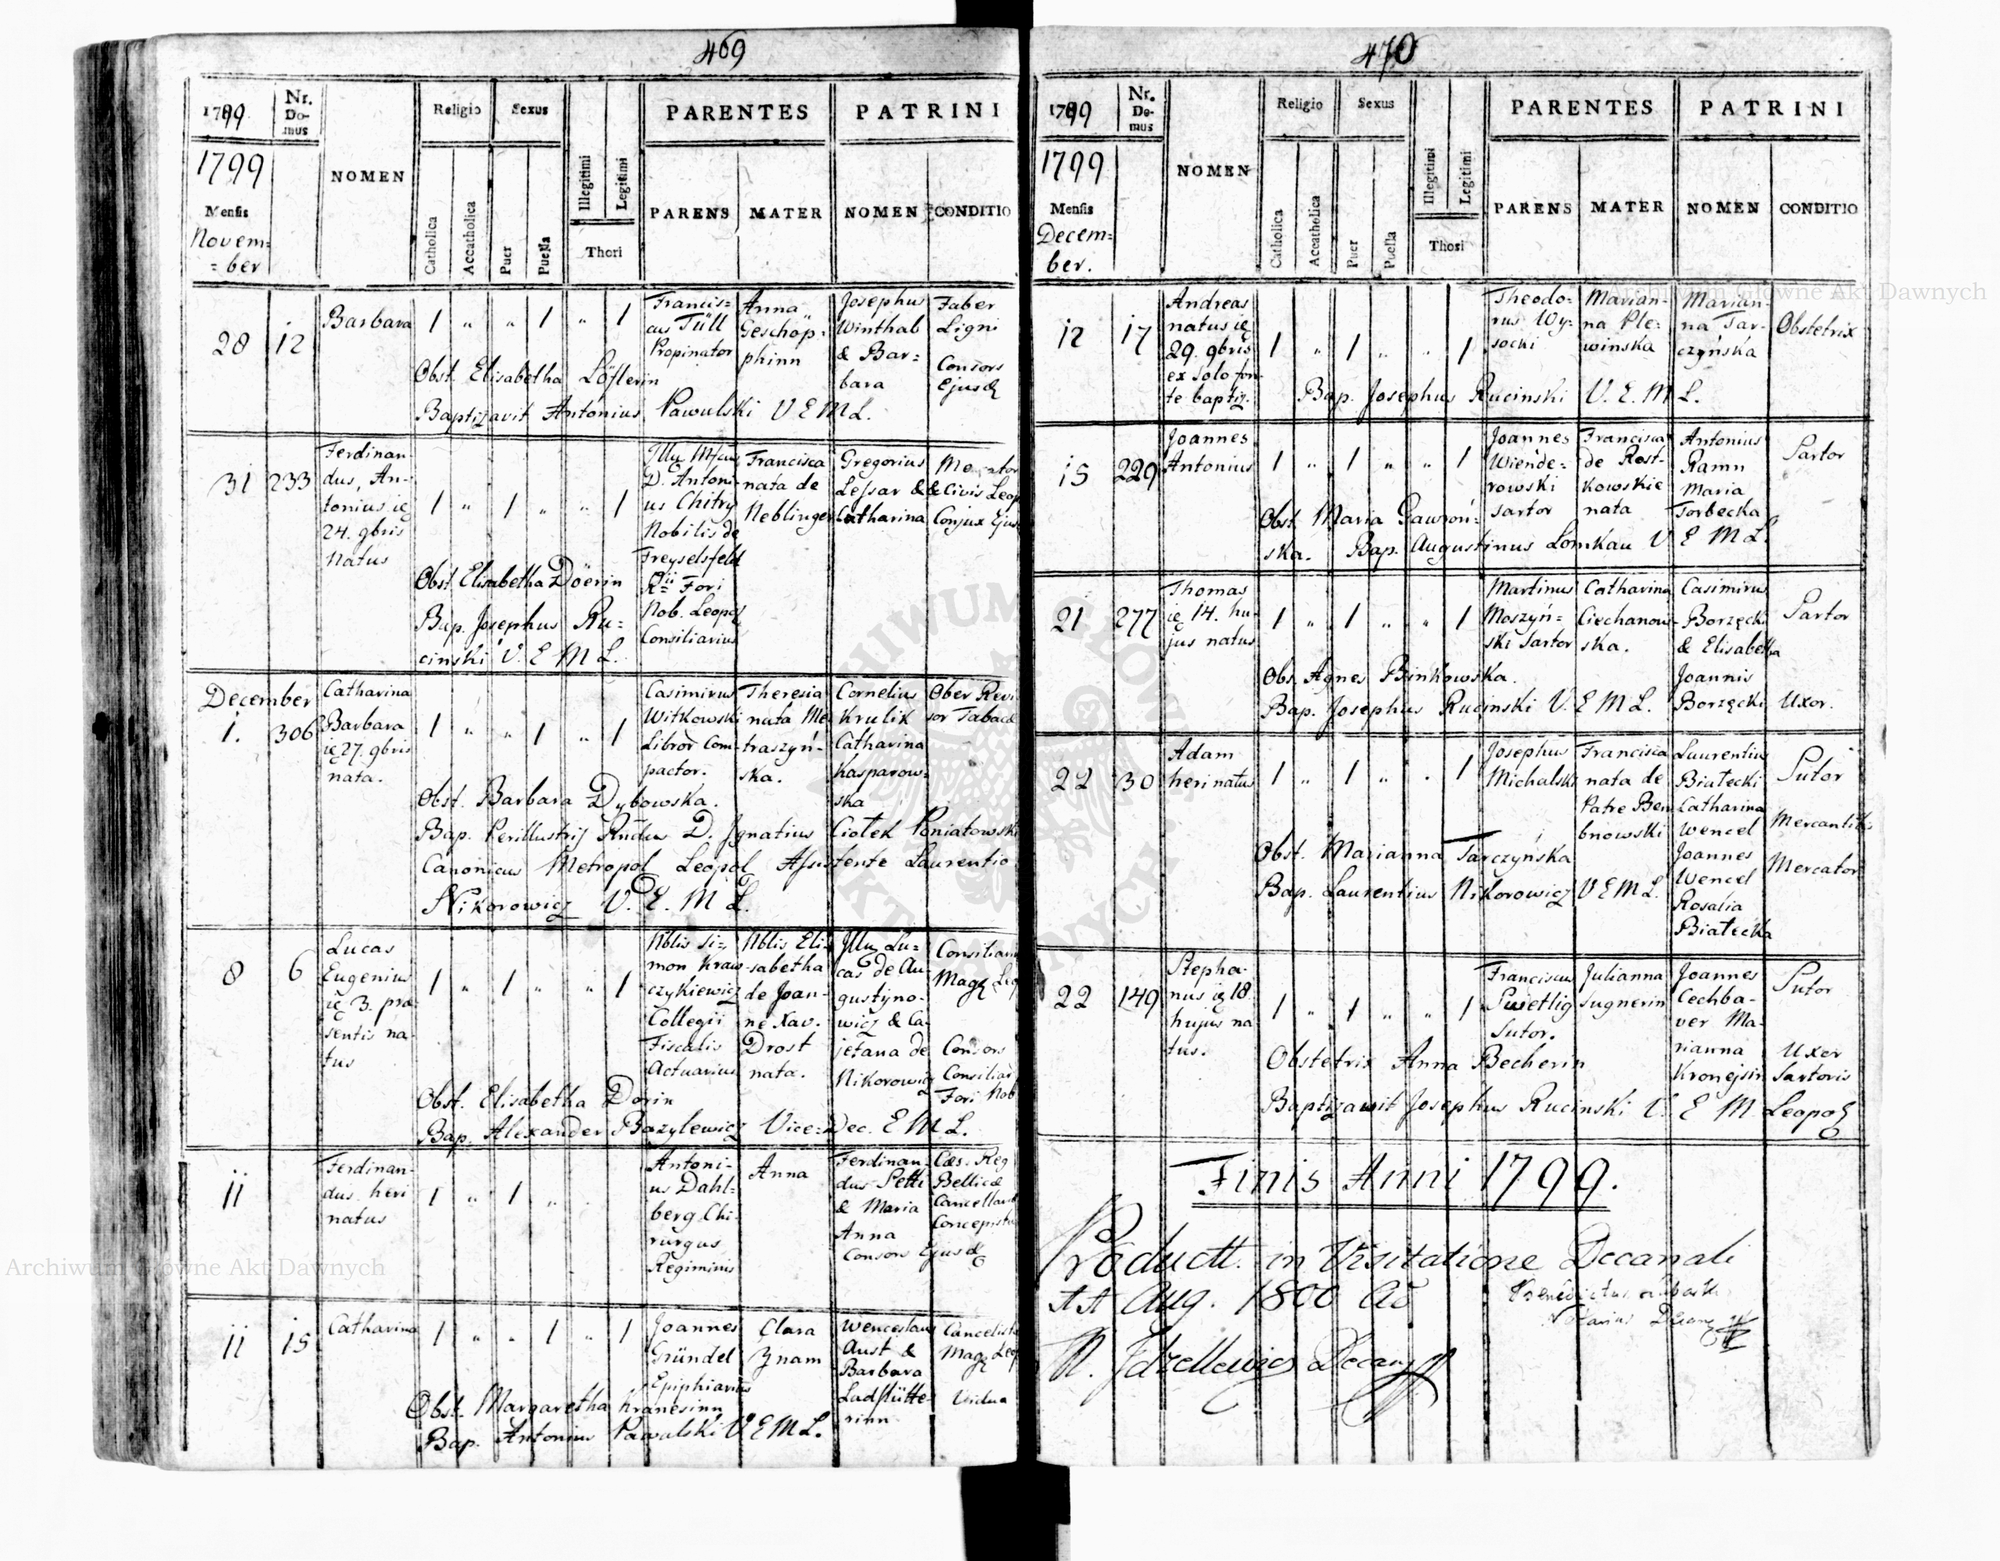 469
1799
Nr. Do-mus
NOMEN
Religio
Sexus
Illegitimi
Legitimi
Thori
PARENTES
PATRINI
1799
Mensis
Novem=
=ber
Catholica
Accatholica
Puer
Puella
PARENS
MATER
NOMEN
CONDITIO
28 12 Barbara 1 " " 1 " 1
Francis=
cus Tüll
Propinator
Anna
Geschöp-
phinn
Josephus
Winthal
& Bar=
bara
Faber
Ligni
Consors
Ejusd
Obst. Elisabetha Löflerin
Baptizavit Antonius Pawulski V E M L.
31 233
Ferdinan
dus, An-
tonius ie
24. 9bris
Natus
1 " 1 " " 1
D. Antoni-
us Chitry
Nobilis de
Freyselsfeld
Fori
Nob. Leopol
Consiliarius
Francisca
nata de
Neblinger
Gregorius
Lessar &
Catharina
& Civis Leop
Conjux Ejus
Obst. Elisabetha Doërin
Bap. Josephus Ru=
cinski V. E M L.
December
1. 306
Catharina
Barbara
ie 27. 9bris
nata.
1 " " 1 " 1
Casimirus
Witkowski
Libror Com-
pactor.
Theresia
nata Me
traszyń-
ska.
Cornelius
Krulik
Catharina
Kasparow=
ska
Ober Revi
sor Taback
Obst. Barbara Dybowska.
Bap. Perillustris Rndus D. Ignatius Ciołek Poniatowski
Canonicus Metropol Leopol Assistente Laurentio
Nikorowicz V. E. M L.
8 6
Lucas
Eugenius
ie 3. præ
sentis na-
tus
1 " 1 " " 1
Nblis Si=
mon Kraw-
czykiewicz
Collegii
Fiscalis
Actuarius
Nblis Eli-
sabetha
de Joan-
ne Xav.
Drost
nata.
Lu=
cas de Au-
gustyno-
wicz & Ca-
jetana de
Nikorowicz
Consiliar
Mag Leo
Consors
Consiliar
Fori Nob
Obst. Elisabetha Dorin
Bap. Alexander Bazylewicz Vice-Dec. E M L.
11
Ferdinan-
dus heri
natus
1 " 1 "
Antoni-
us Dahl-
berg Chi-
rurgus
Regiminis
Anna
Ferdinan-
dus Petti
& Maria
Anna
Consors Ejusd
Cæs. Reg
Bellicæ
Cancellariæ
Concepista
11 15 Catharina 1 " " 1 " 1
Joannes
Gründel
Epiphiarius
Clara
Znam
Wenceslaus
Aust &
Barbara
Ladstütte-
rinn
Cancelista
Mag Leop
Vidua
Obst. Margaretha Kranesinn
Bap. Antonius Pawulski V E M L.
470
1799
Nr. Do-mus
NOMEN
Religio
Sexus
Illegitimi
Legitimi
Thori
PARENTES
PATRINI
1799
Mensis
Decem=
ber.
Catholica
Accatholica
Puer
Puella
PARENS
MATER
NOMEN
CONDITIO
12 17
Andreas
natus ie
29. 9bris
ex solo fon
te baptiz.
1 " 1 " " 1
Theodo-
rus Wy-
socki
Marian-
na Ple-
winska
Marian-
na Tar-
czyńska
Obstetrix
Bap. Josephus Rucinski V. E. M L.
15 229
Joannes
Antonius
1 " 1 " " 1
Joannes
Wiende=
rowski
Sartor
Francisca
de Rost-
kowskie
nata
Antonius
Ramn
Maria
Torbecka
Sartor
Obst. Maria Gawroń=
ska. Bap. Augustinus Lomkau V E M L.
21 277
Thomas
ie 14. hu-
jus natus
1 " 1 " " 1
Martinus
Moszyń-
ski Sartor
Catharina
Ciechanow-
ska.
Casimirus
Borzęcki
& Elisabetha
Joannis
Borzęcki
Sartor
Uxor.
Obs. Agnes Binkowska.
Bap. Josephus Rucinski V. E M L.
22 30
Adam
heri natus
1 " 1 " " 1
Josephus
Michalski
Francisca
nata de
Patre Ben
bnowski
Laurentius
Białecki
Catharina
Wencel
Joannes
Wencel
Rosalia
Białecka
Sutor
Mercator
Obst. Marianna Tarczyńska
Bap. Laurentius Nikorowicz V E M L.
22 149
Stepha-
nus ie 18.
hujus na
tus.
1 " 1 " " 1
Franciscus
Swietlig
Sutor.
Julianna
Sugnerin
Joannes
Cechba-
ver Ma-
rianna
Kronejsin
Sutor
Uxor
Sartoris
Obstetrix Anna Becherin
Baptizavit Josephus Rucinski V. E M Leopol
Finis Anni 1799.
Product. in Visitatione Decanali
Aug. 1800
Archiwum Główne Akt Dawnych
Archiwum Główne Akt Dawnych
ARCHIWUM GŁÓWNE AKT DAWNYCH